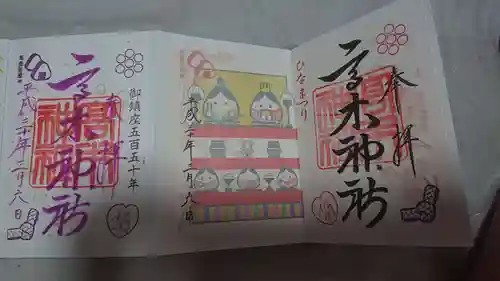 奉拝
高木神社
ひなまつり
平成三十年三月六日
御鎮座五百五十年
奉拝
高木神社
平成三十年二月六日